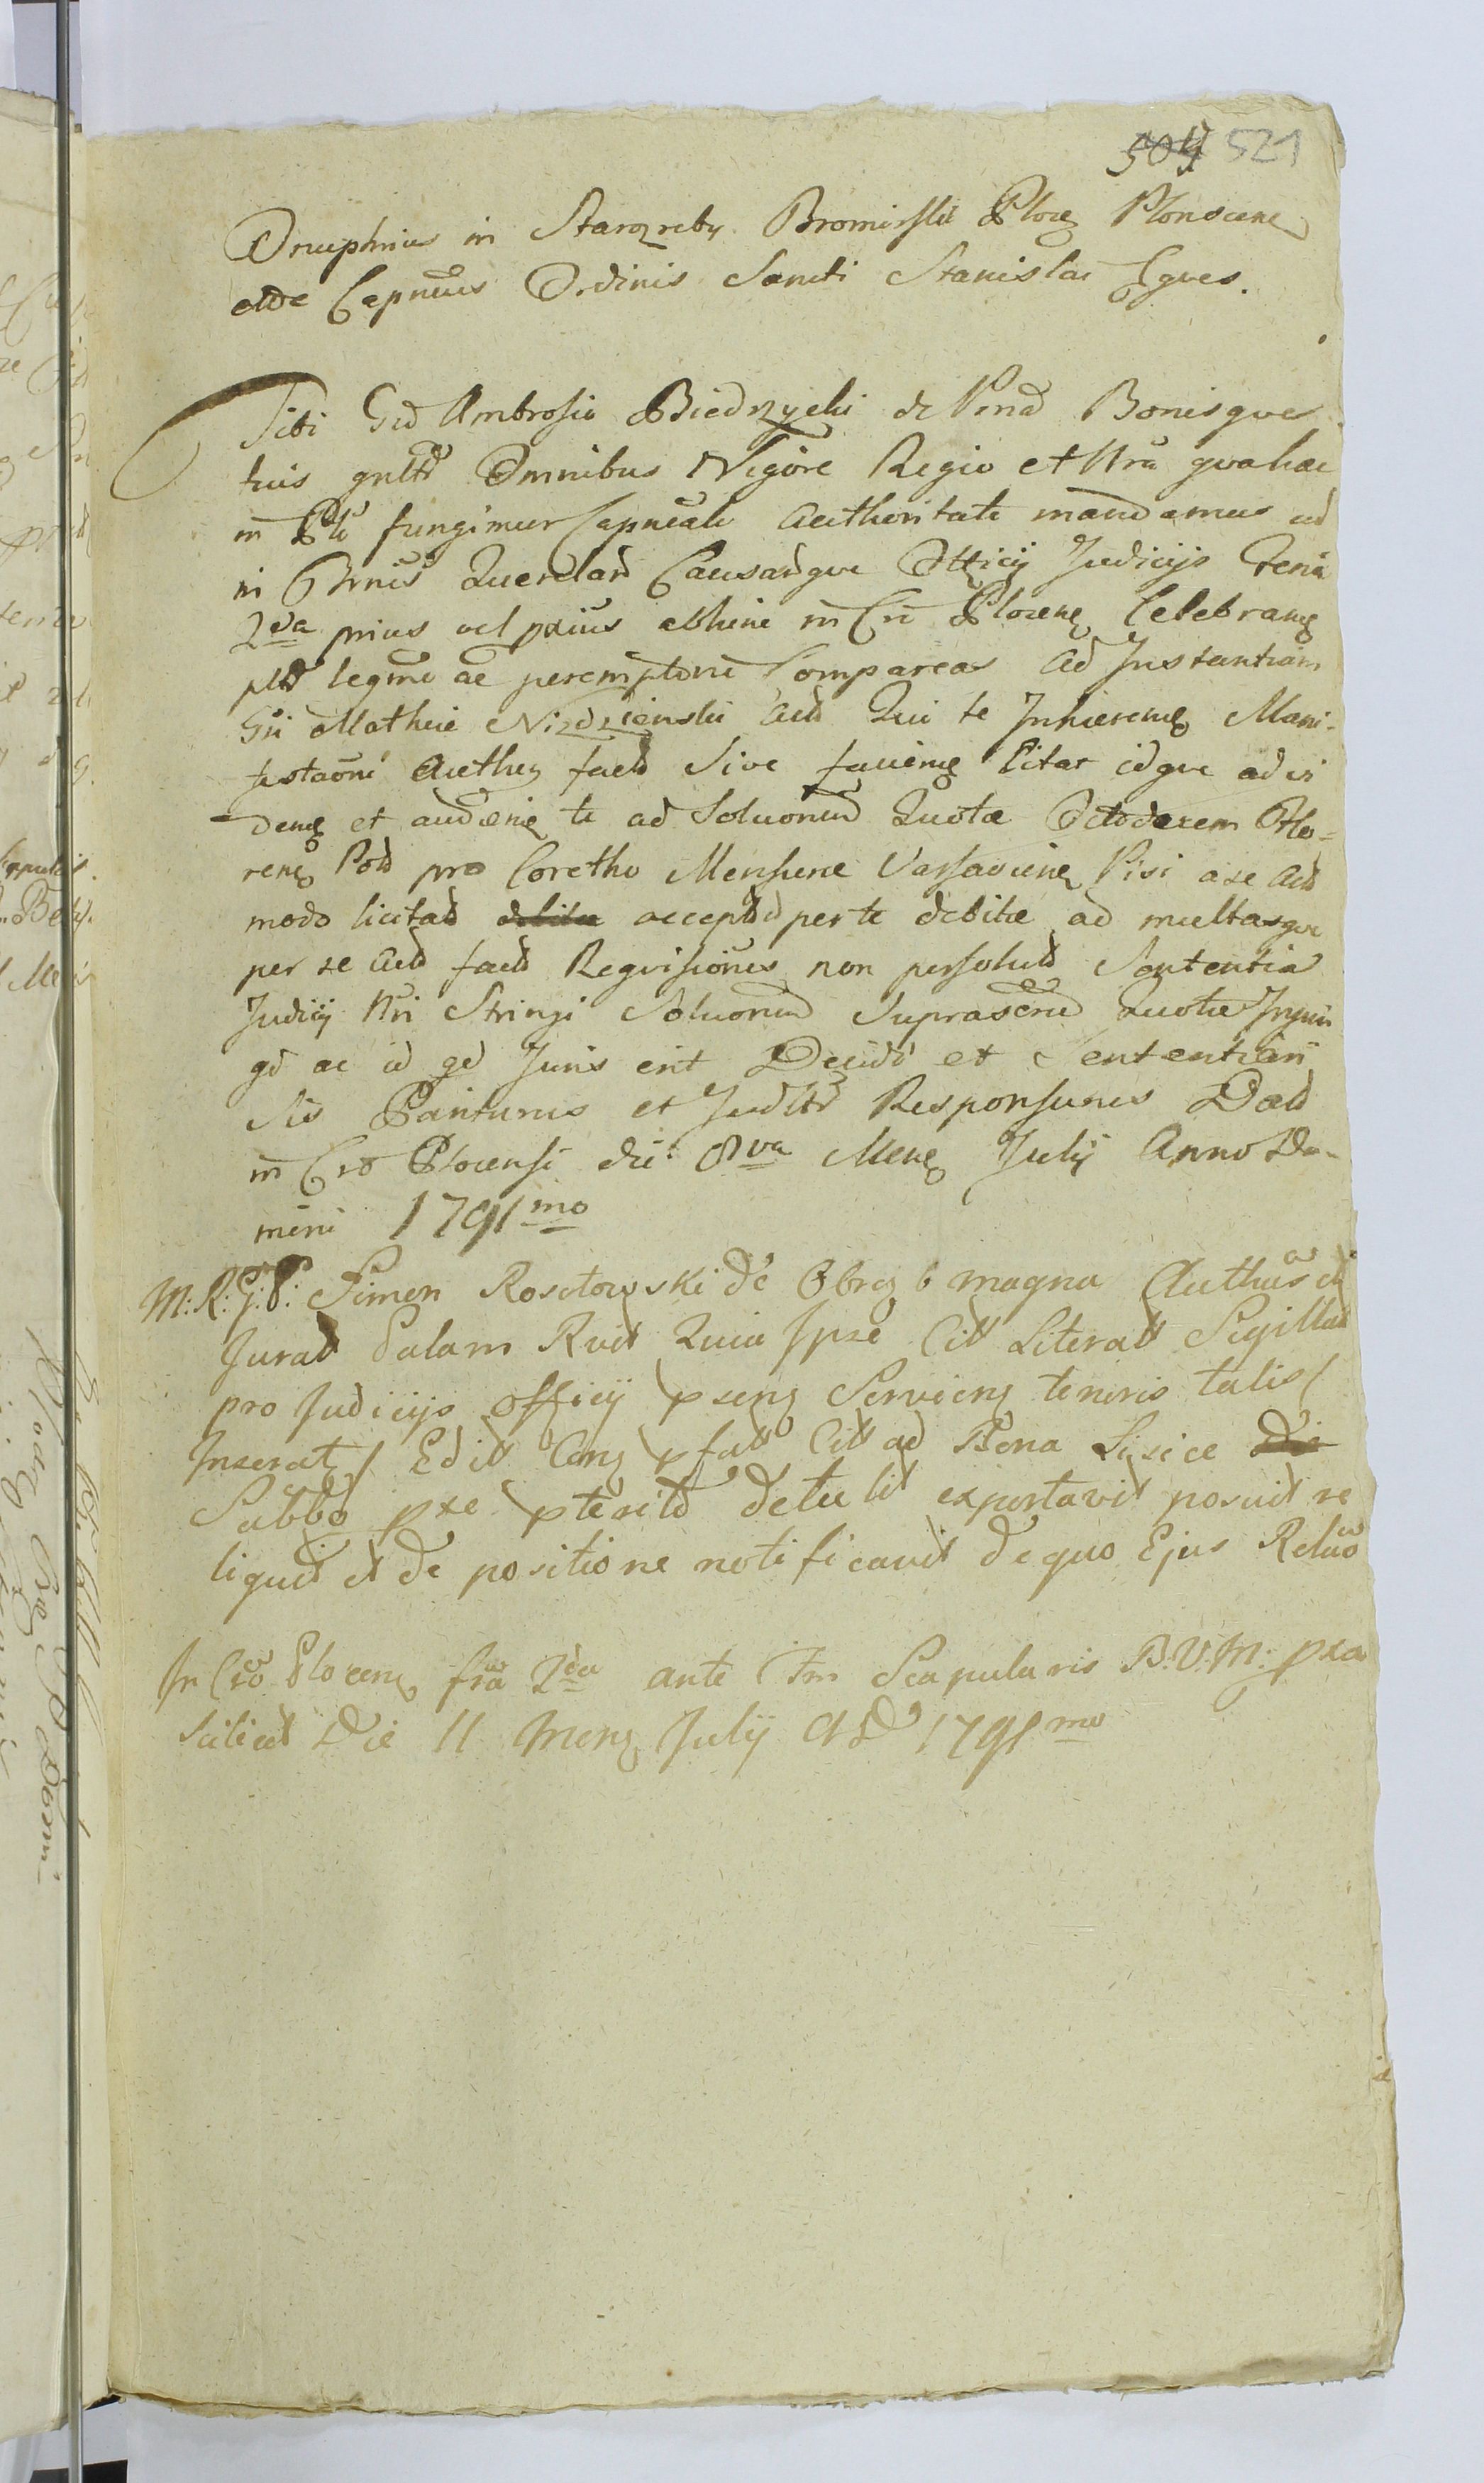 509 521
Onuphrius in Starozreby Bromirski Ploceñ Plonsceñ
etde Capnẽus Ordinis Sancti Stanislai Eques.
Tibi Gd Ambrosio Biedrzycki de Psnd Bonisque
tuis gnltr Omnibus Vigore Regio et Nrã qua hac
in Ptẽ fungimur Capnẽali Authoritate mandamus ut
in Crnis Querelar Causarque Officij Judicijs feria
2da prius vel pxius abhinc in Crõ Ploceñ Celebrañ
pltr legme ac peremptorie Compareas ad Instantiam
Gsi Mathiæ Nizdzienski Actr Qui te Inhærenẽ Mani-
festaõni Authen factæ Sive faciene Citat idque ad vi
dene et audiene te ad Soluonem Quotæ Octodecem Flo-
reñ Pol pro Coretho Mensuræ Varsavieñ Pisi a se Actr
modo licitat accept per te debitæ ad multasque
per se Actr fact Requisiones non persolut Sententia
Judicij Nri Stringi Soluonem Suprascrip Quotæ Injun
gi ac id qd Juris erit Decidi et Sententiari
Sis Pariturus et Judltr Responsurus Dat
in Crõ Plocensi die 8va Mens Julij Anno Do-
mini 1791mo
M: R: G: P: Simon Rosetowski de Obręb magna Authus et
Jurat Palam Rvit Quia Ipse Citt Literatt Sigillat
pro Judicijs Officij pseng Servieng tenoris talis /
Inserat / Edit Cong pfatt Citt ad Bona Lisice
Sabbõ pxe pterito detulit exportavit posuit re
liquit et de positione notificavit de quo Ejus Relão
In Crõ Ploceñ fria 2da ante Fm Scapularis B. V. M: pxa
scilicet Die 11 Mens Julij A D 1791mo